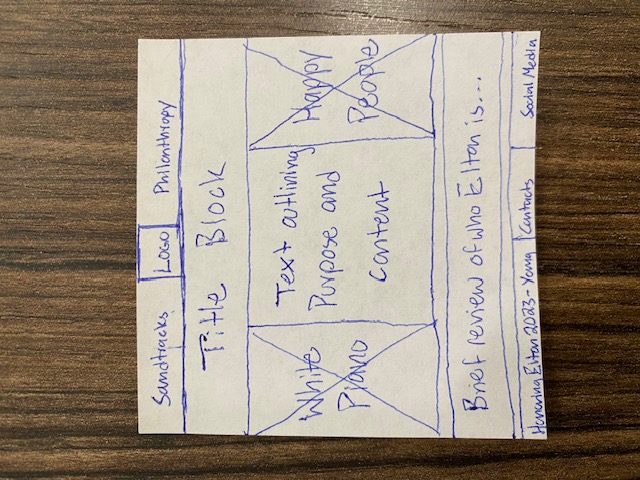 Sandtracks
LOGO
Philanthropy
Title Block
White
Piano
Text outlining
Purpose and
Content
Happy
People
Brief review of who Elton is...
Honoring Elton 2023-
Contacts
Social Media